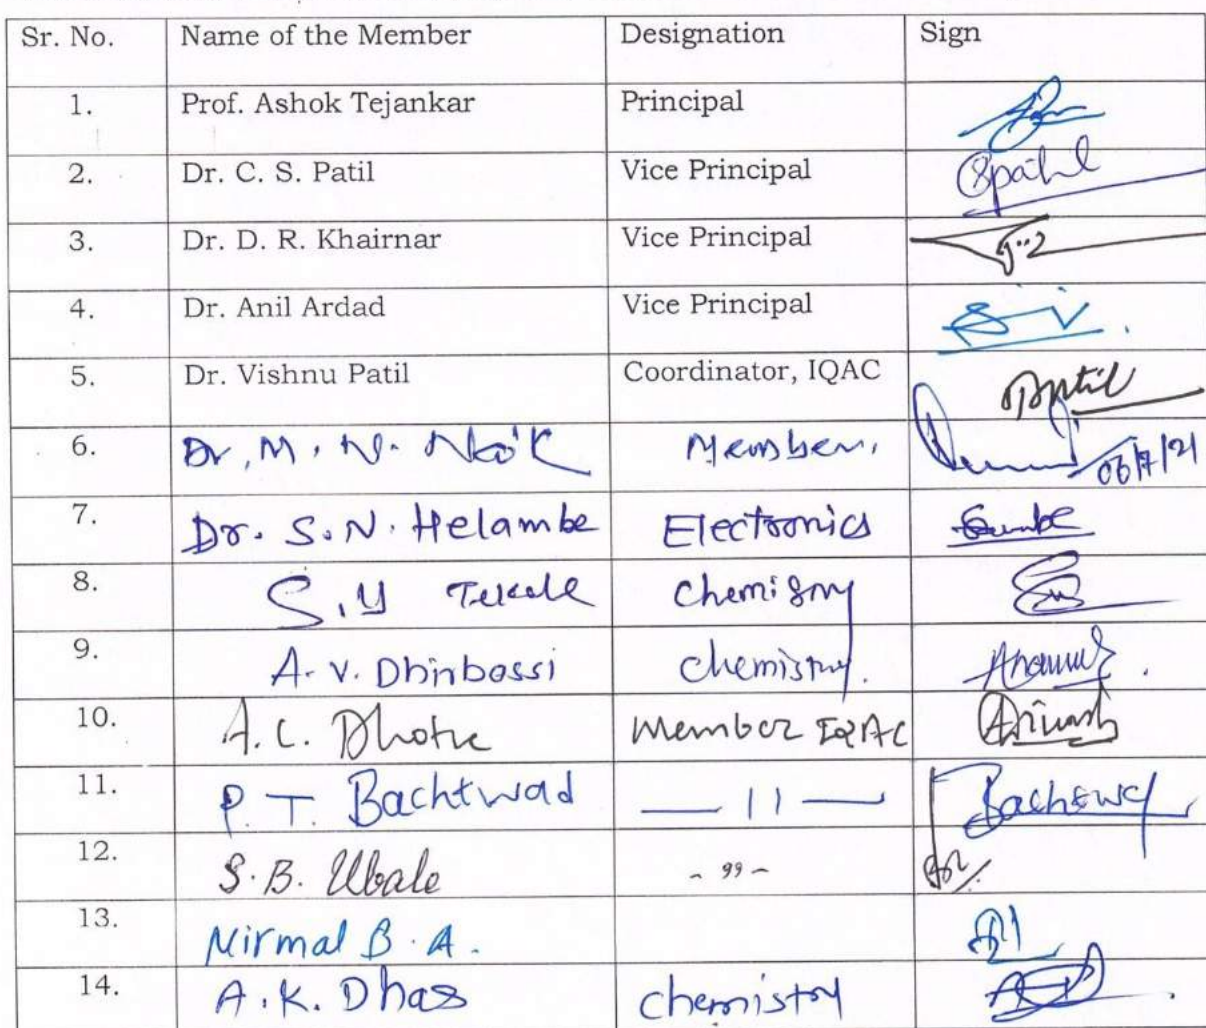 Sr. No. Name of the Member Designation Sign
1. Prof. Ashok Tejankar Principal
2. Dr. C. S. Patil Vice Principal Cspatil
3. Dr. D. R. Khairnar Vice Principal
4. Dr. Anil Ardad Vice Principal
5. Dr. Vishnu Patil Coordinator, IQAC
6. Dr. M. N. Naik Member, 06/7/21
7. Dr. S. N. Helambe Electronics
8. S. Y Tekale Chemistry
9. A. V. Dhirbassi chemistry.
10. A. C. Dhotre Member IQAC
11. P. T. Bachtwad — 11 —
12. S. B. Ubale - 99 -
13. Nirmal B. A.
14. A. K. Dhas chemistry